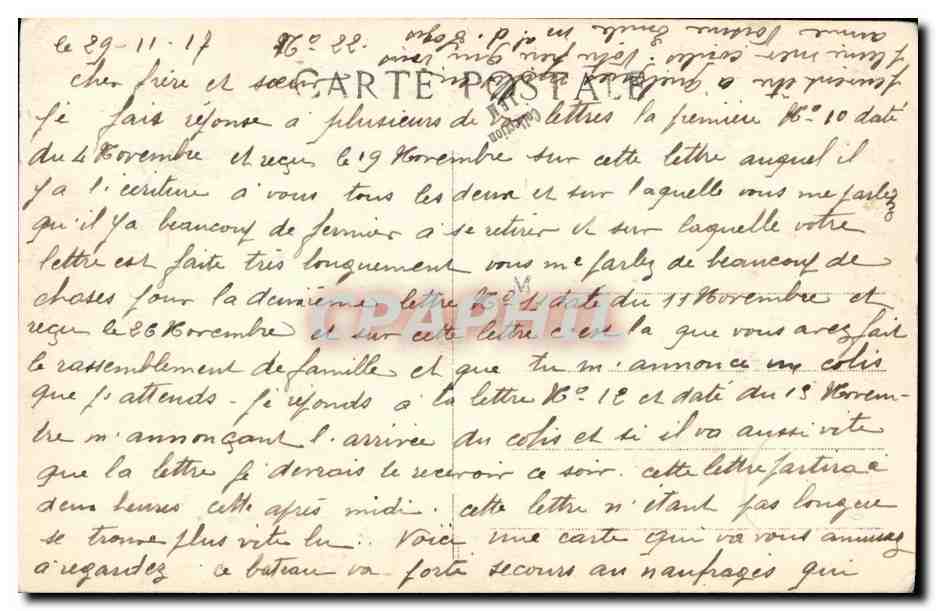 le 29-11-17 No 22.
cher frère et sœur
CARTE POSTALE
Collection
je fais réponse à plusieurs de lettres la première No 10 daté
du 4 Novembre et reçu le 19 Novembre sur cette lettre auquel il
y a l'écriture à vous tous les deux et sur laquelle vous me parlez
qu'il y a beaucoup de fermier à se retirer et sur laquelle votre
lettre est faite très longuement vous me parlez de beaucoup de
choses pour la deuxième lettre No 11 daté du 11 Novembre et
reçu le 26 Novembre et sur cette lettre c'est la que vous avez fait
CPAPHIL
le rassemblement de famille et que tu m'annonce un colis
que j'attends - je réponds à la lettre No 12 et daté du 13 Novem-
bre m'annonçant l'arrivée du colis et si il va aussi vite
que la lettre je devrais le recevoir ce soir. cette lettre partira à
deux heures cette après midi. cette lettre n'étant pas longue
se trouve plus vite lu. Voici une carte qui va vous amusez
à regardez ce bateau va porté secours au naufragés qui